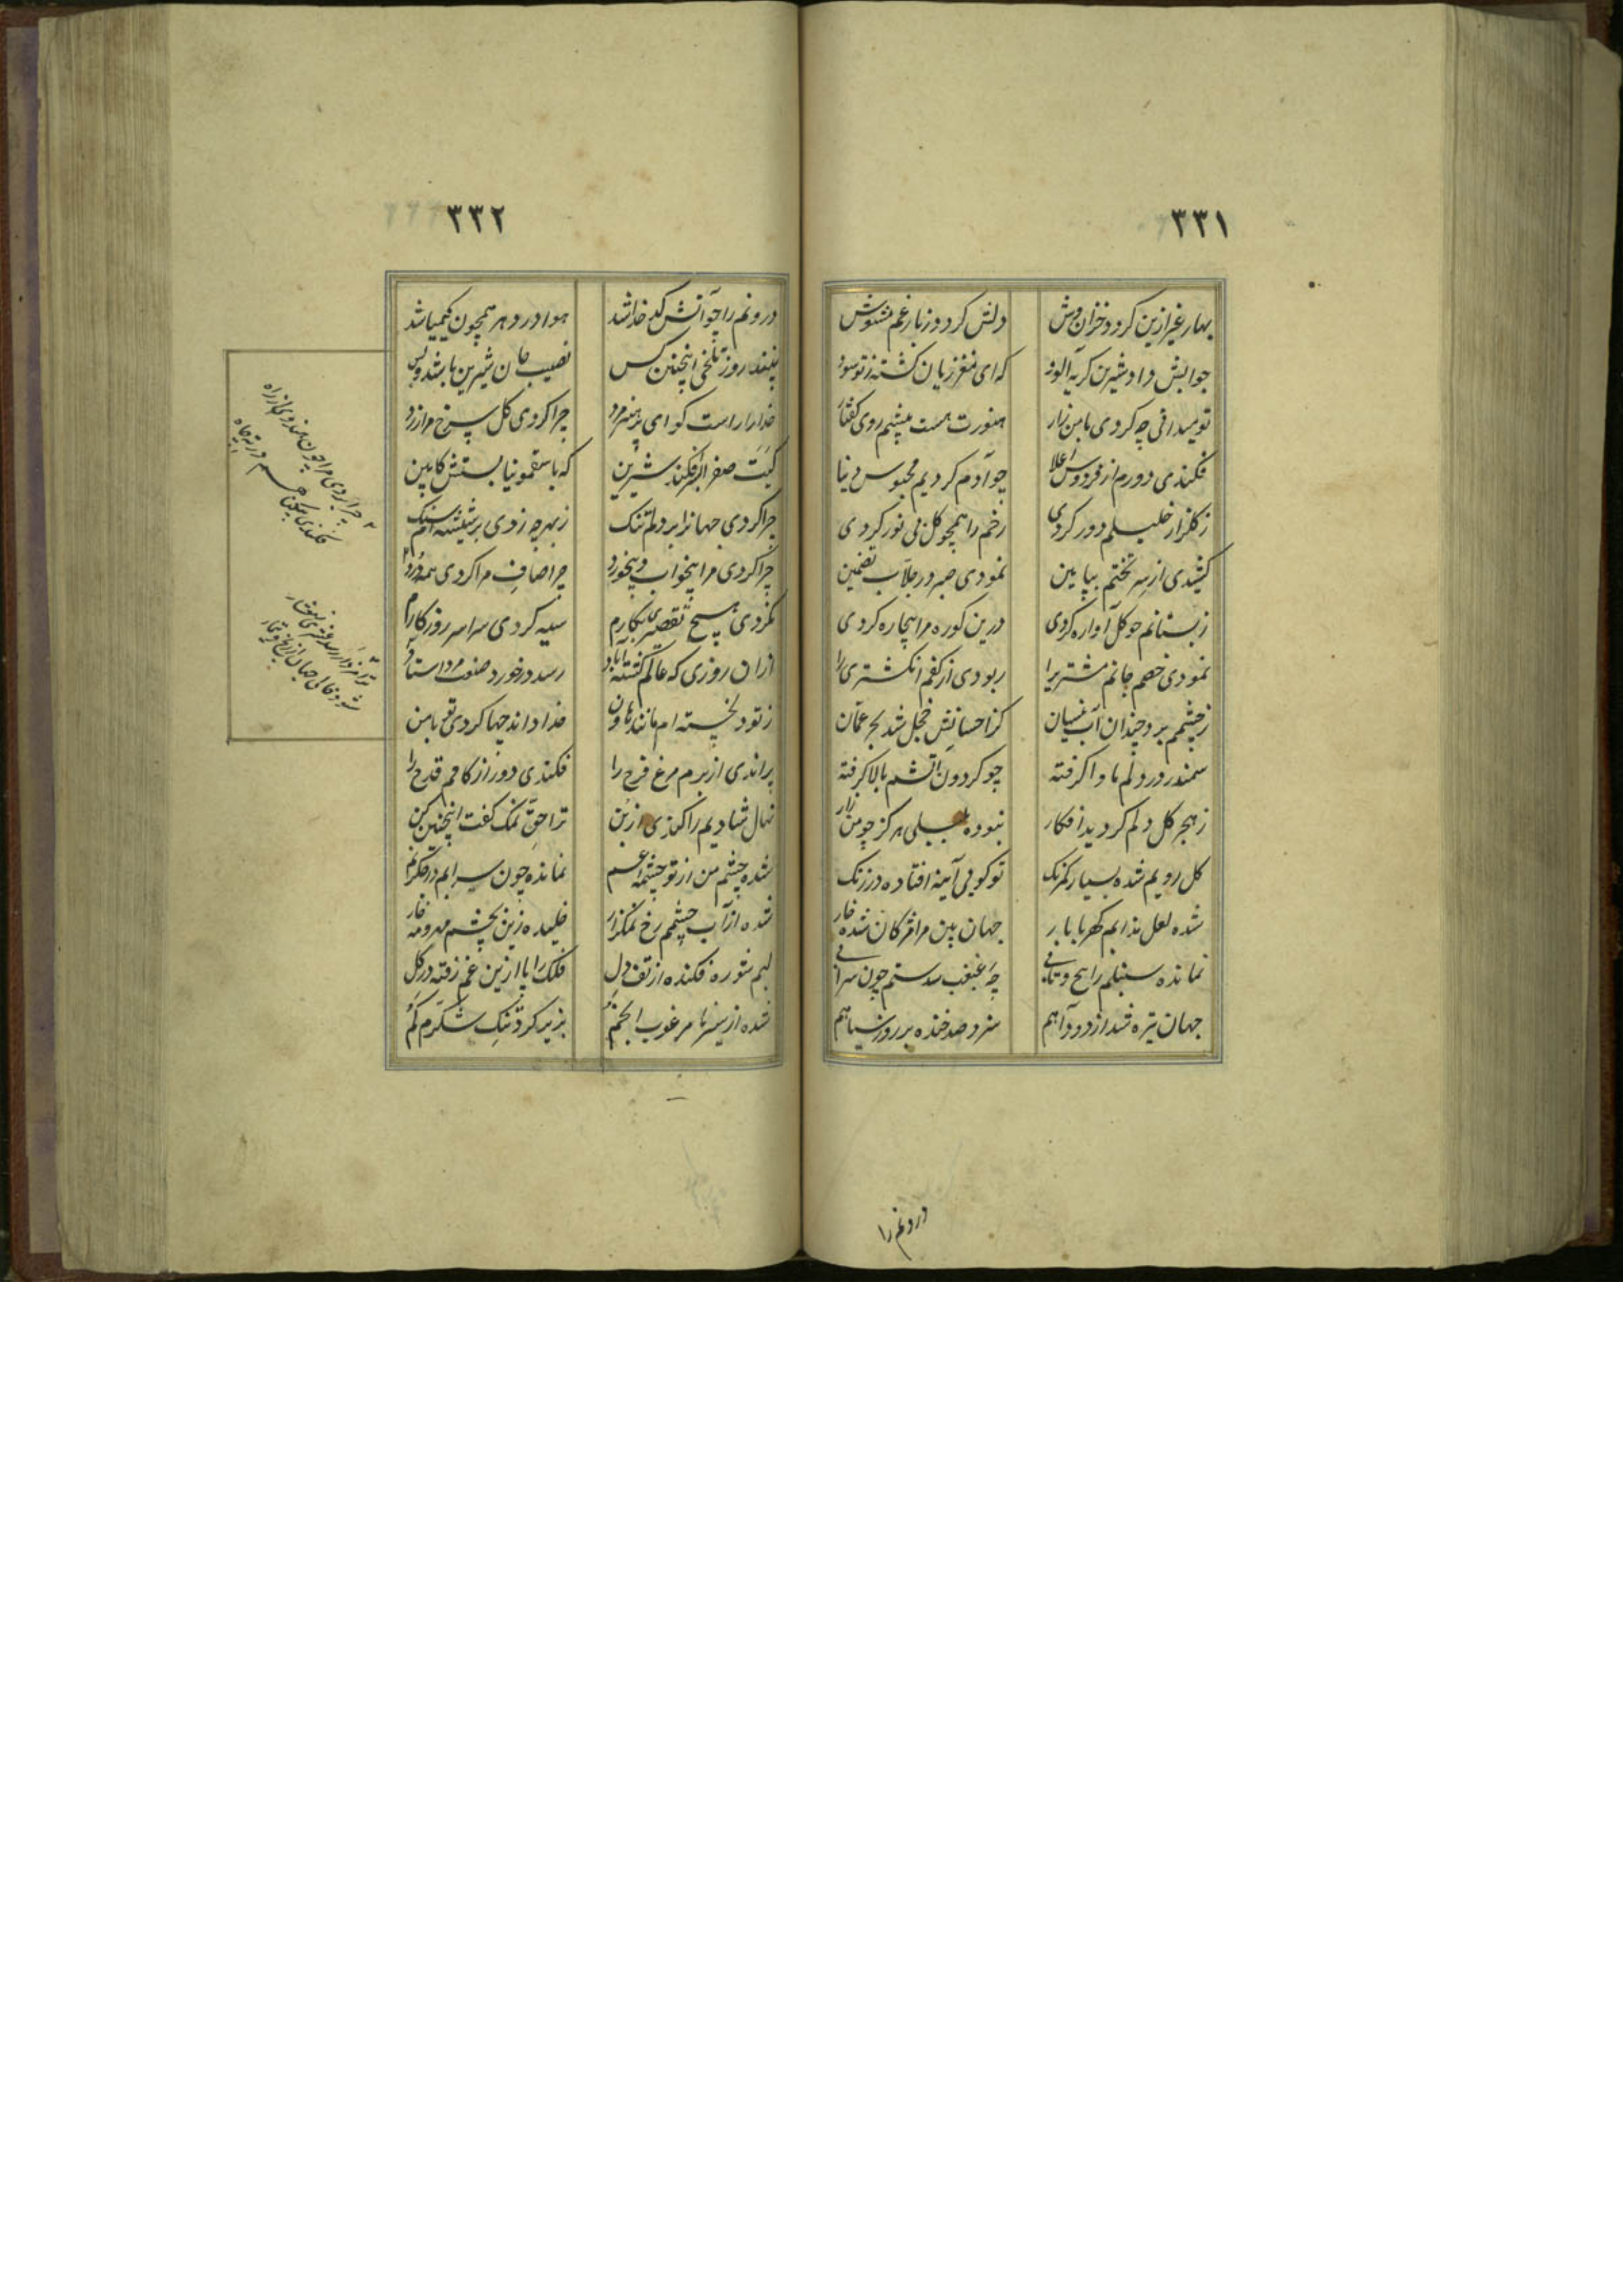 ٣٣١
بهار غیر ازین کرد و خزان وش
دلش کرد و ز بار غم مشوش
جوابش داد شیرین کریه آلود
که ای مغز زیان کشته ز تو سود
تو میدانی چه کردی با من زار
هنوزت هست پیشم روی کفتار
فکندی دورم از فردوس اعلا
چو آدم کردیم محبوس دنیا
ز کلزار خلیلم دور کردی
رخم را همچو کل بی نور کردی
کشیدی از سر تختم بپایین
نمودی صبر در جلاب تضمین
ز بستانم چو کل آواره کردی
درین کوره مرا بیچاره کردی
نمودی خصم جانم مشتریرا
ربودی از کفم انکشتری را
ز چشمم برد چندان آب نیسان
کز احسانش خجل شد بحر عمّان
سمندر در دلم ماوا کرفته
چو کردون آتشم بالا کرفته
ز هجر کل دلم کردید افکار
نبوده بلبلی هرکز چو من زار
کل رویم شده بسیار کمرنک
تو کویی آینه افتاده در زنک
شده لعل بذایم کهربا بار
جهان بین مرا مژکان شده خار
نمانده سنبلم را هیچ و تابی
چه غبغب سد ستم چون سرابی
جهان تیره شد از دود آهم
سزد صد خنده بر روز سیاهم
درونم را
٣٣٢
درونم را چو آتش کد خدا شد
هوا در دهر همچون کیمیا شد
نبیند روز تلخی اینچنین کس
نصیب جان شیرین باشد و بس
خدا را راست کو ای پر هنر مرد
چرا کردی کل سرخ مرا زرد
کیت صفرا بر افکند شیرین
که با سقمونیا بستش کابین
چرا کردی جهانرا بر دلم تنک
ز بهر چه زدی بر شیشه ام سنک
چرا کردی مرا بیخواب و بیخورد
چرا صاف مرا کردی همه درد
نکردی هیچ تقصیری بکارم
سیه کردی سراسر روزکارم
از ان روزی که عالم کشته آباد
رسد در خورد صنعت مرد استاد
ز تو دلخسته ام مانند هاون
خدا داند چها کردی تو با من
پراندی از برم مرغ فرح را
فکندی دور از کامم قدح را
نهال شادیم را کندی از بن
ترا حقّ نمک کفت اینچنین کن
شده چشم من از تو چشمه غم
نمانده چون سرابم در جکر نم
شده از آب چشمم رخ نمکزار
خلیده زین بچشم مهر و مه خار
لبم شوره فکنده از تف دل
فلک را پا ازین غم رفته در کل
شده از سیر ما مرغوب انجم
بزیر کرد تنک شکرم کم
چرا بردی مرا چون هندوی از راه
فکندی بیکناهم در ته چاه
شود خالی جهان از